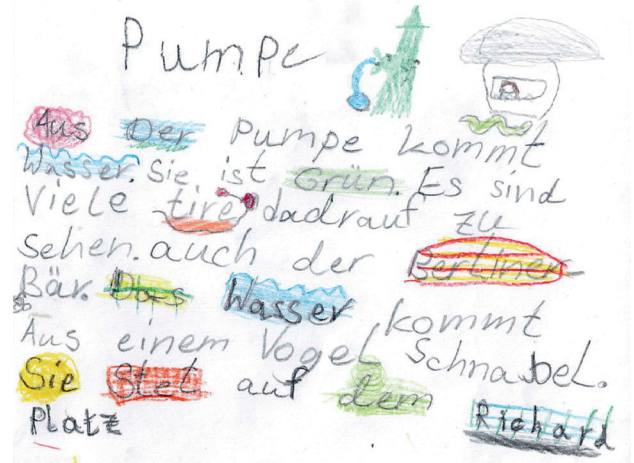 Pumpe
Aus Der Pumpe kommt
Wasser. Sie ist Grün. Es sind
Viele tire dadrauf zu
Sehen. auch der Berliner
Bär. Das Wasser kommt
Aus einem Vogel Schnabel.
Sie Stet auf dem Richard
Platz